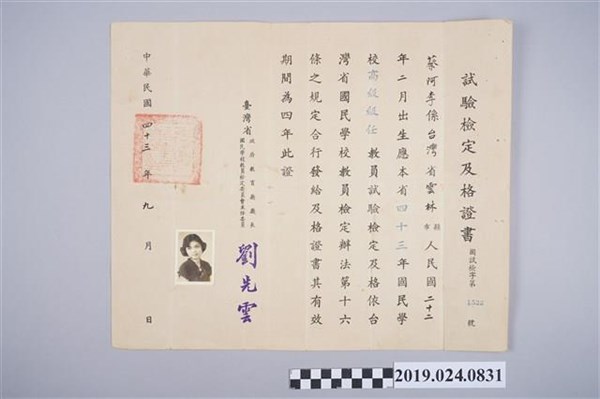 試驗檢定及格證書 國試檢字第1522號
蔡河李係台灣省雲林縣市人民國二十二
年二月出生應本省四十三年國民學
校高級級任教員試驗檢定及格依台
灣省國民學校教員檢定辦法第十六
條之規定合行發給及格證書其有效
期間為四年此證
臺灣省政府教育廳廳長
國民學校教員檢定委員會主任委員
劉先雲
中華民國四十三年九月 日
2019.024.0831